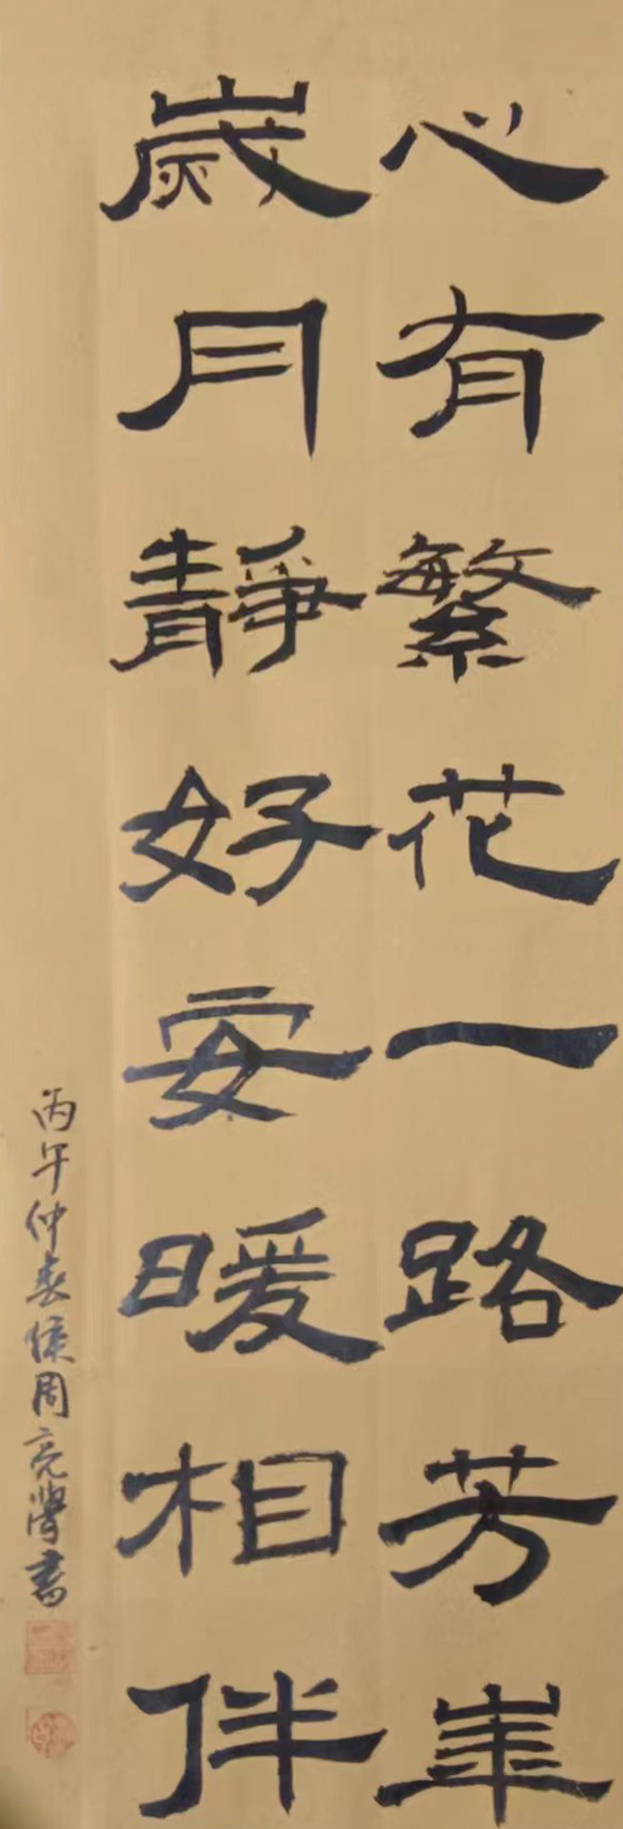 心有繁花一路芳崋
歲月靜好安暖相伴
丙午仲春侯周亮學書